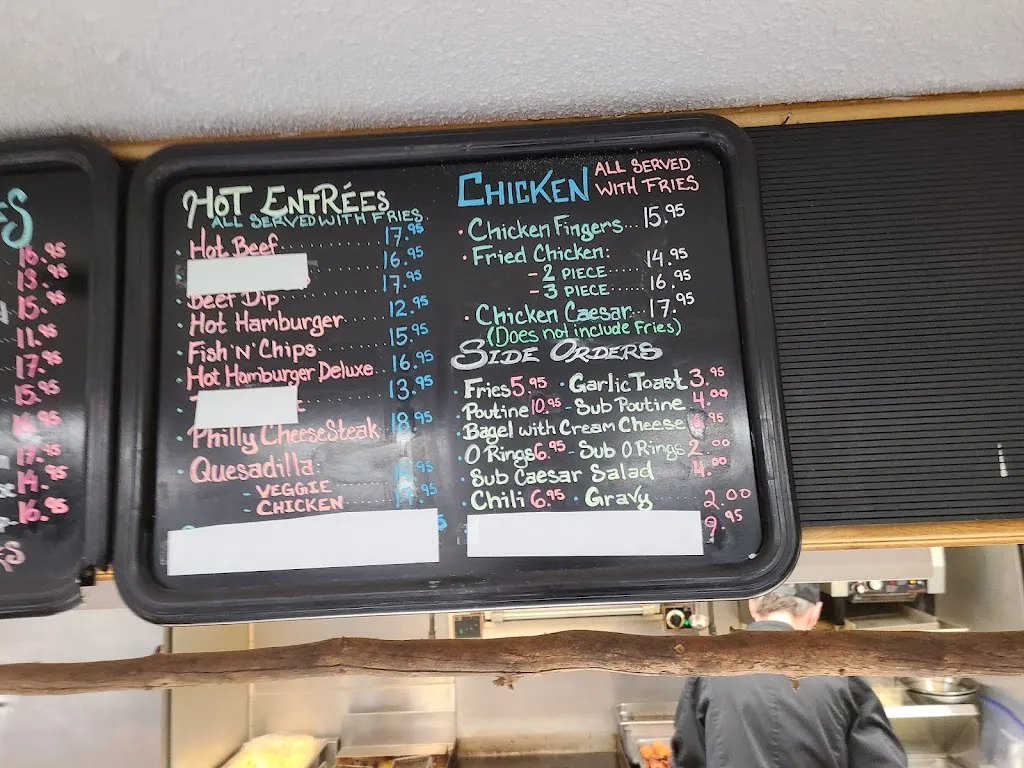 16.95
13.95
15.95
11.95
17.95
15.95
17.95
14.95
16.95
HOT ENTRÉES
ALL SERVED WITH FRIES
Hot Beef 17.95
16.95
Beef Dip 17.95
Hot Hamburger 12.95
Fish 'N' Chips 15.95
Hot Hamburger Deluxe 16.95
13.95
Philly CheeseSteak 18.95
Quesadilla:
- VEGGIE
- CHICKEN
CHICKEN ALL SERVED
WITH FRIES
• Chicken Fingers 15.95
• Fried Chicken:
- 2 PIECE 14.95
- 3 PIECE 16.95
• Chicken Caesar 17.95
(Does not include Fries)
SIDE ORDERS
• Fries 5.95 • Garlic Toast 3.95
• Poutine 10.95 - Sub Poutine 4.00
• Bagel with Cream Cheese
• O Rings 6.95 - Sub O Rings 2.00
• Sub Caesar Salad 4.00
• Chili 6.95 • Gravy 2.00
9.95